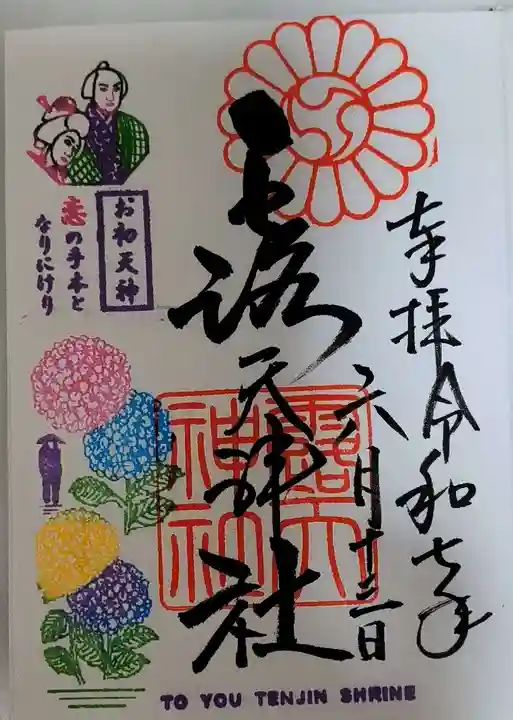 奉拝令和七年
六月十三日
露天神社
露天
神社
お初天神
恋の手本と
なりにけり
TO YOU TENJIN SHRINE